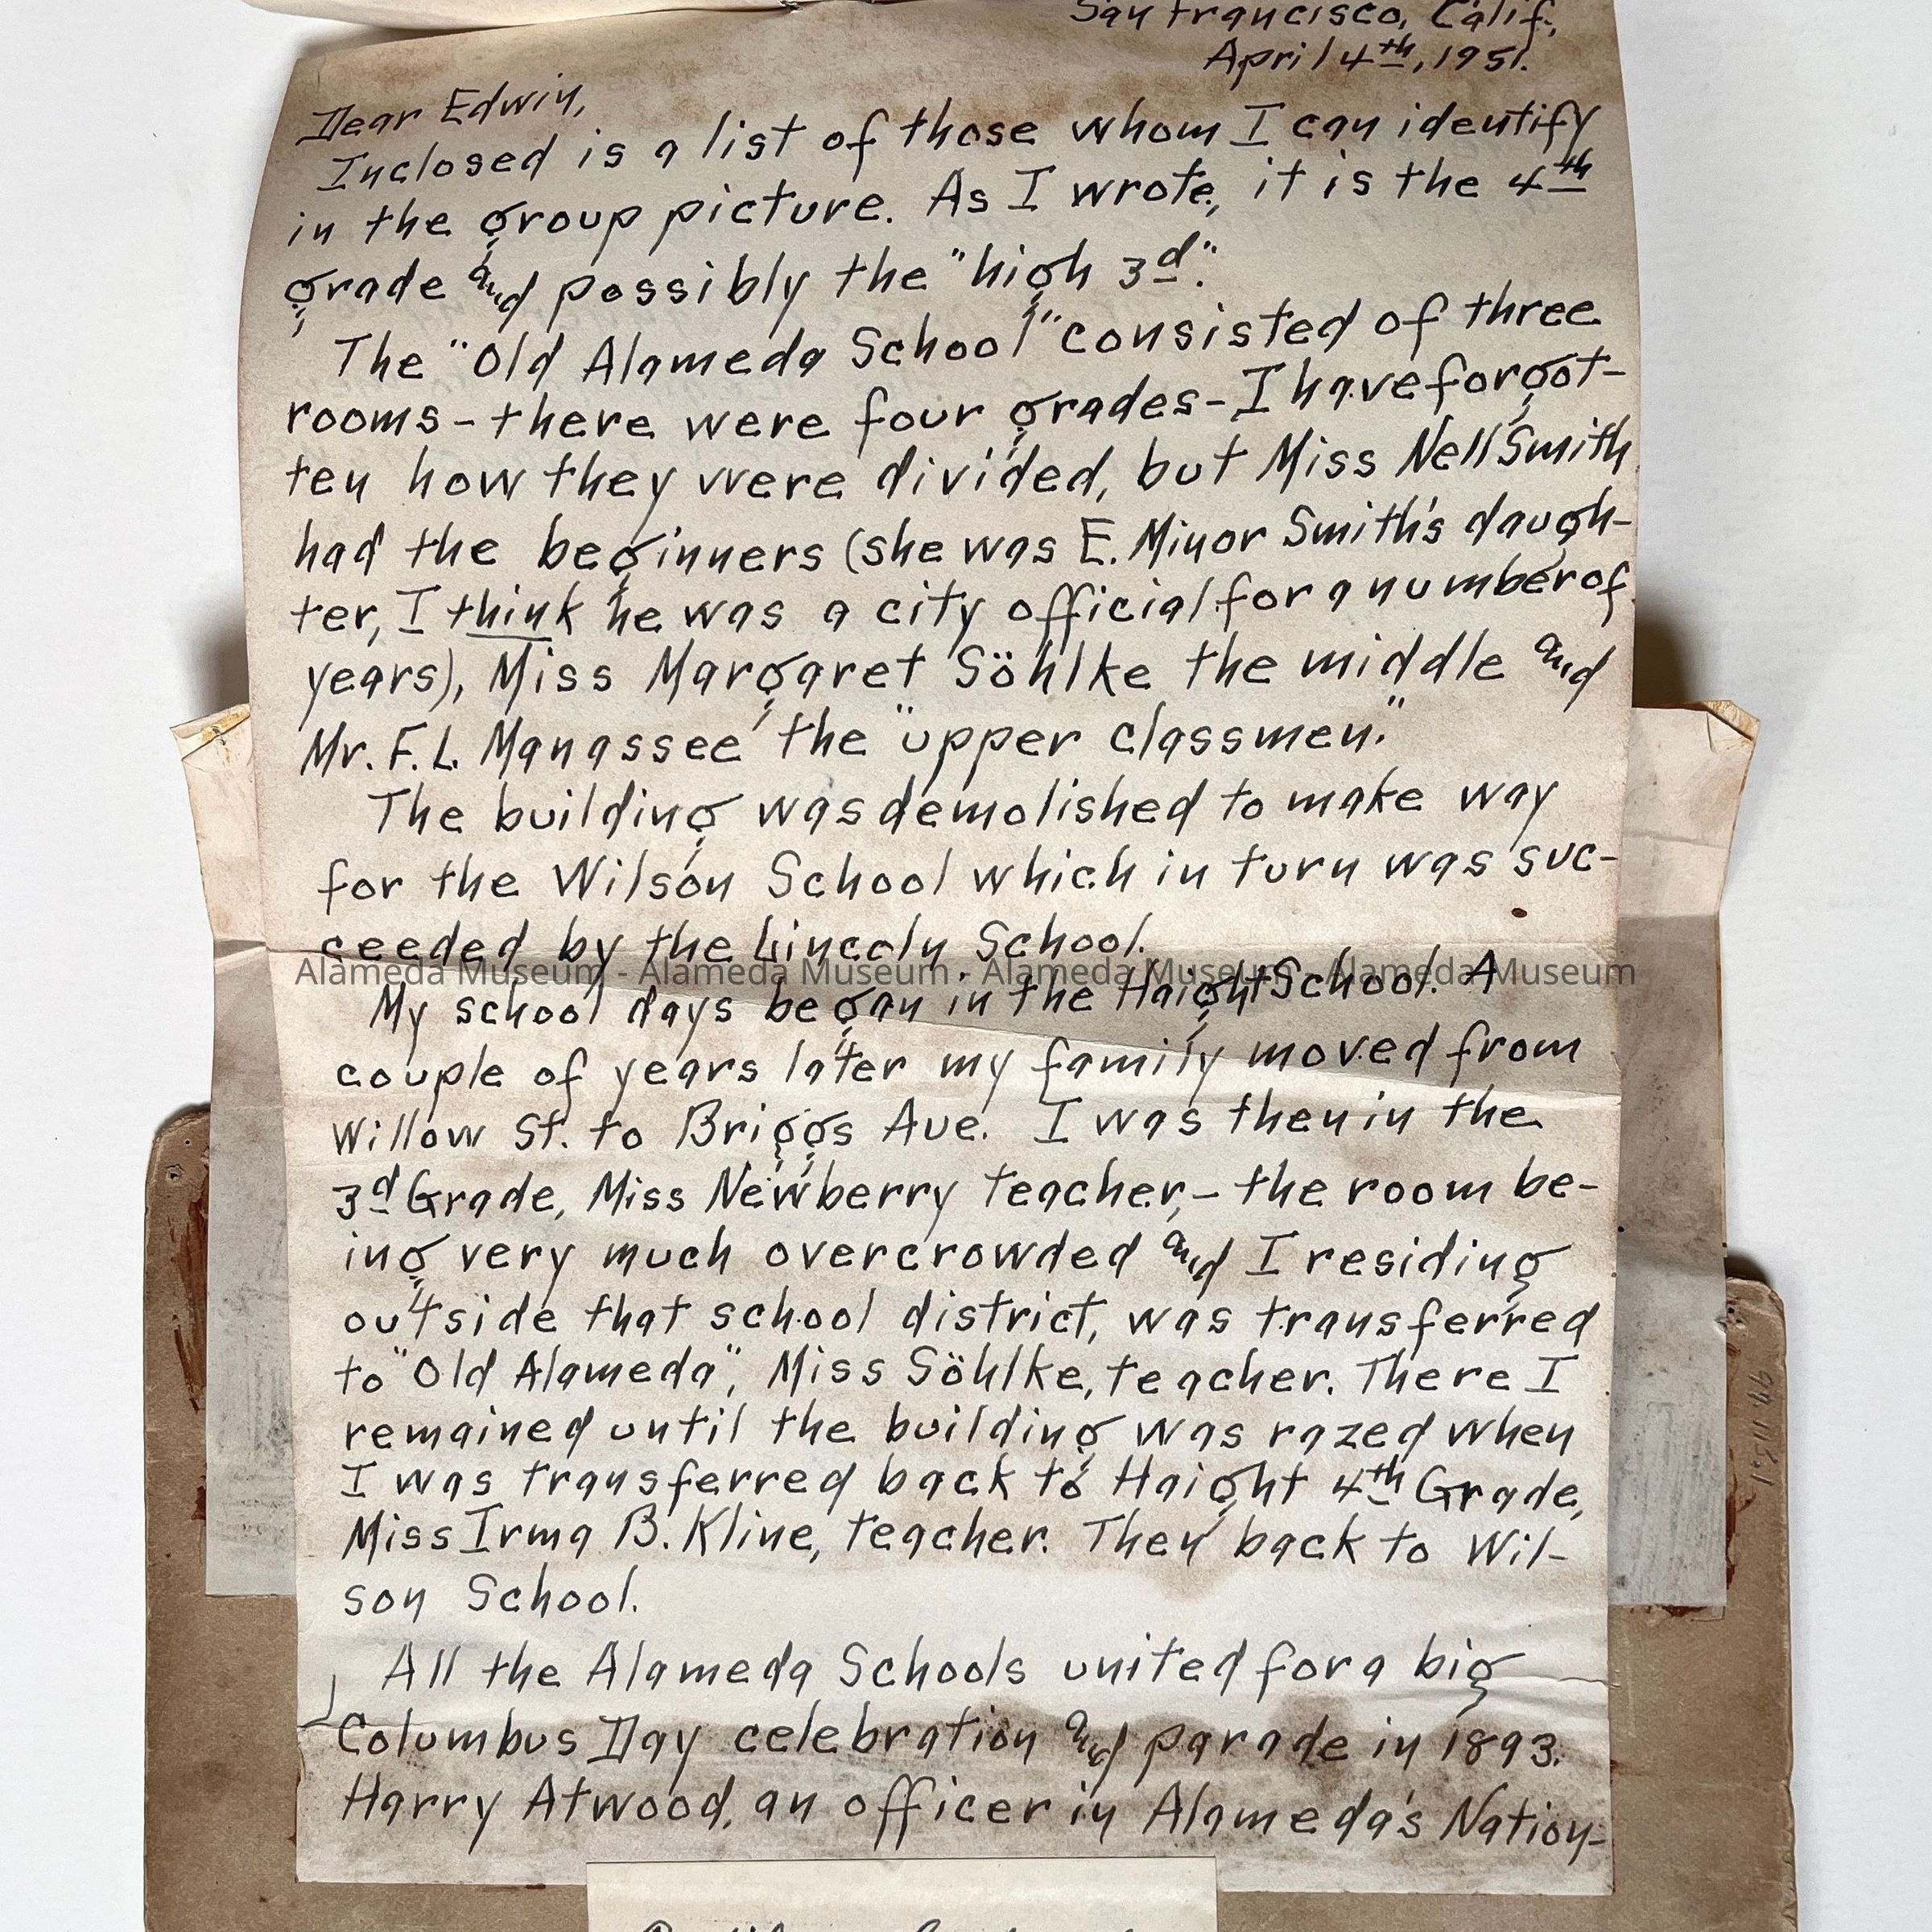 San Francisco, Calif.,
April 4th, 1951.
Dear Edwin,
Inclosed is a list of those whom I can identify
in the group picture. As I wrote, it is the 4th
grade and possibly the "high 3d".
The "Old Alameda School" consisted of three
rooms - there were four grades - I have forgot-
ten how they were divided, but Miss Nell Smith
had the beginners (she was E. Minor Smith's daugh-
ter, I think he was a city official for a number of
years), Miss Margaret Söhlke the middle and
Mr. F. L. Manassee the "upper classmen."
The building was demolished to make way
for the Wilson School which in turn was suc-
ceeded by the Lincoln School.
Alameda Museum - Alameda Museum - Alameda Museum - Alameda Museum
My school days began in the Haight School. A
couple of years later my family moved from
Willow St. to Briggs Ave. I was then in the
3d Grade, Miss Newberry teacher, - the room be-
ing very much overcrowded and I residing
outside that school district, was transferred
to "Old Alameda", Miss Söhlke, teacher. There I
remained until the building was razed when
I was transferred back to Haight 4th Grade,
Miss Irma B. Kline, teacher. Then back to Wil-
son School.
All the Alameda Schools united for a big
Columbus Day celebration and parade in 1893.
Harry Atwood, an officer in Alameda's Nation-